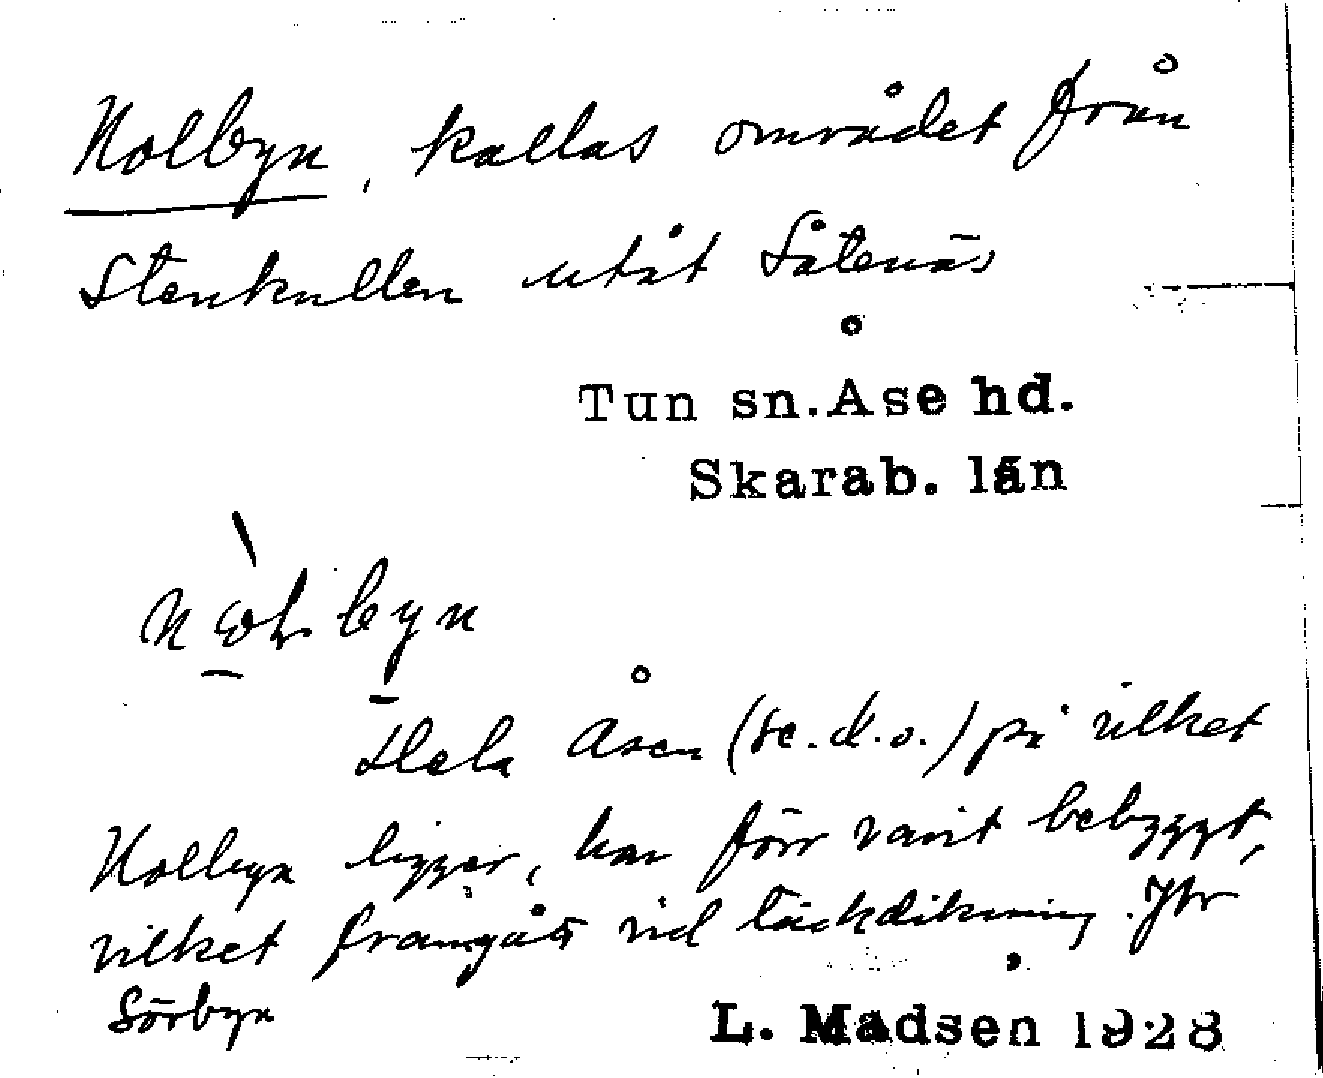 Nolbyn, kallas området från
Stenkullen utåt Såtenäs
Tun sn. Åse hd.
Skarab. län
byn
Hela Åsen (se. d. o.) på vilket
Nolbyn ligger, har förr varit bebyggt,
vilket framgått vid täckdikning. Jfr
Sörbyn
L. Madsen 1928